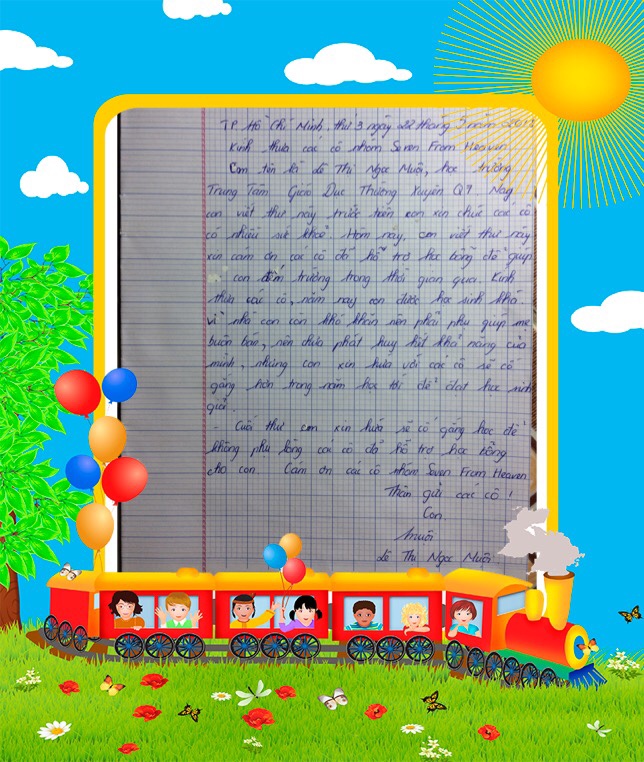 TP. Hồ Chí Minh, thứ 3 ngày 22 tháng 5 năm
Kính thưa các cô nhóm Seven From Heaven
Con tên là Lê Thị Ngọc Muội, học trường
Trung Tâm Giáo Dục Thường Xuyên Q7. Nay
con viết thư này trước tiên con xin chúc các cô
có nhiều sức khoẻ. Hôm nay, con viết thư này
xin cảm ơn các cô đã hỗ trợ học bổng để giúp
con đến trường trong thời gian qua. Kính
thưa các cô, năm nay con được học sinh khá.
Vì nhà con còn khó khăn nên phải phụ giúp mẹ
buôn bán, nên chưa phát huy hết khả năng của
mình, nhưng con xin hứa với các cô sẽ cố
gắng hơn trong năm học tới để đạt học sinh
giỏi.
- Cuối thư con xin hứa sẽ cố gắng học để
không phụ lòng các cô đã hỗ trợ học bổng
cho con. Cảm ơn các cô nhóm Seven From Heaven
Thân gửi các cô!
Con.
Muội
Lê Thị Ngọc Muội.